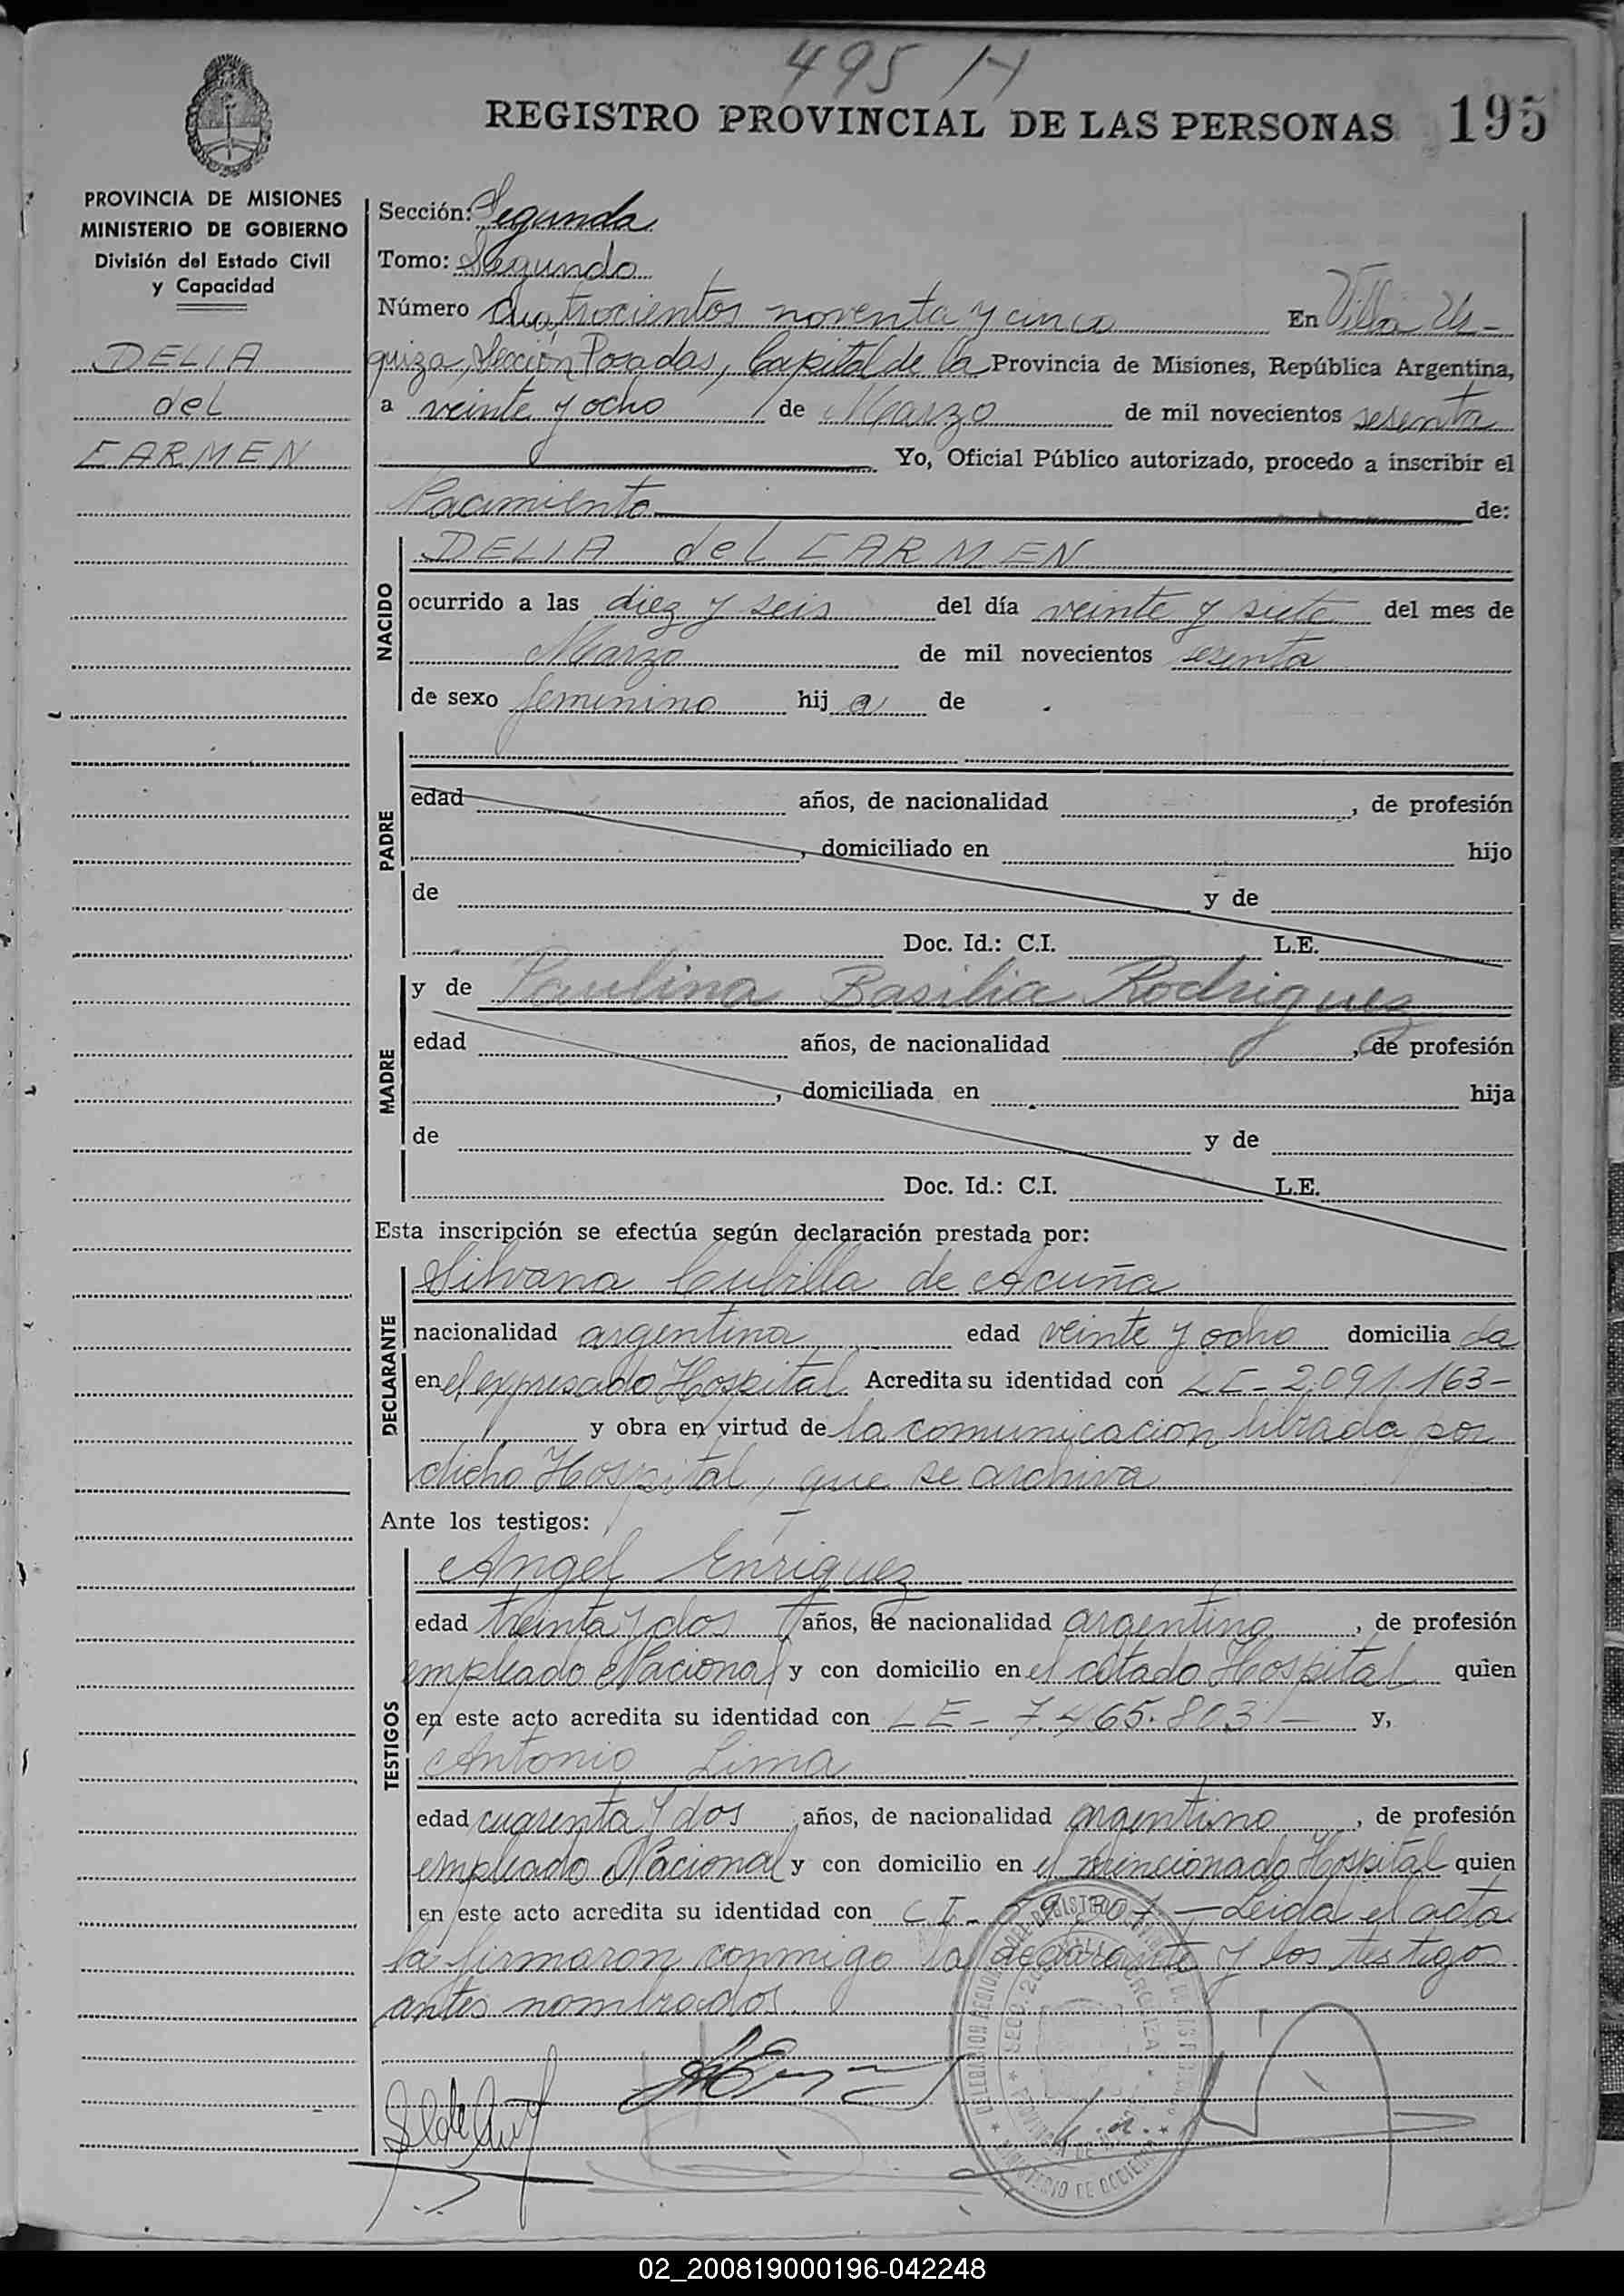 495 H
REGISTRO PROVINCIAL DE LAS PERSONAS 195
PROVINCIA DE MISIONES
MINISTERIO DE GOBIERNO
División del Estado Civil
y Capacidad
DELIA
del
CARMEN
Sección: Segunda
Tomo: Segundo
Número Cuatrocientos noventa y cinco En Villa Ur-
quiza, Sección Posadas, Capital de la Provincia de Misiones, República Argentina,
a veinte y ocho de Marzo de mil novecientos sesenta
Yo, Oficial Público autorizado, procedo a inscribir el
Nacimiento de:
NACIDO
DELIA del CARMEN
ocurrido a las diez y seis del día veinte y siete del mes de
Marzo de mil novecientos sesenta
de sexo femenino hij a de
PADRE
edad años, de nacionalidad , de profesión
, domiciliado en hijo
de y de
Doc. Id.: C.I. L.E.
MADRE
y de Paulina Basilia Rodriguez
edad años, de nacionalidad , de profesión
, domiciliada en hija
de y de
Doc. Id.: C.I. L.E.
Esta inscripción se efectúa según declaración prestada por:
DECLARANTE
Silvana Cubilla de Acuña
nacionalidad argentina edad veinte y ocho domicilia da
en el expresado Hospital. Acredita su identidad con LC- 2.091.163-
y obra en virtud de la comunicacion librada por
dicho Hospital, que se archiva
Ante los testigos:
TESTIGOS
Angel Enriquez
edad treinta y dos años, de nacionalidad argentino , de profesión
empleado Nacional y con domicilio en el citado Hospital quien
en este acto acredita su identidad con LE- 7.465.803- y,
Antonio Lima
edad cuarenta y dos años, de nacionalidad argentino , de profesión
empleado Nacional y con domicilio en el mencionado Hospital quien
en este acto acredita su identidad con C I- - Leida el acta
la firmaron conmigo la declarante y los testigos
antes nombrados.
02_200819000196-042248